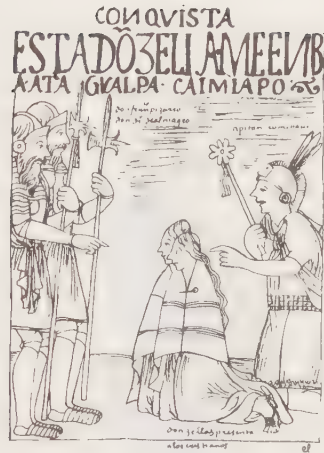 CONQVISTA
ESTADÕ3ELIAMEENB
A ATA GVALPA. CAIMIAPO
do. franco pizarro
don di. de almagro
apitan rumi naui
donzellas presenta
a los cristianos
el